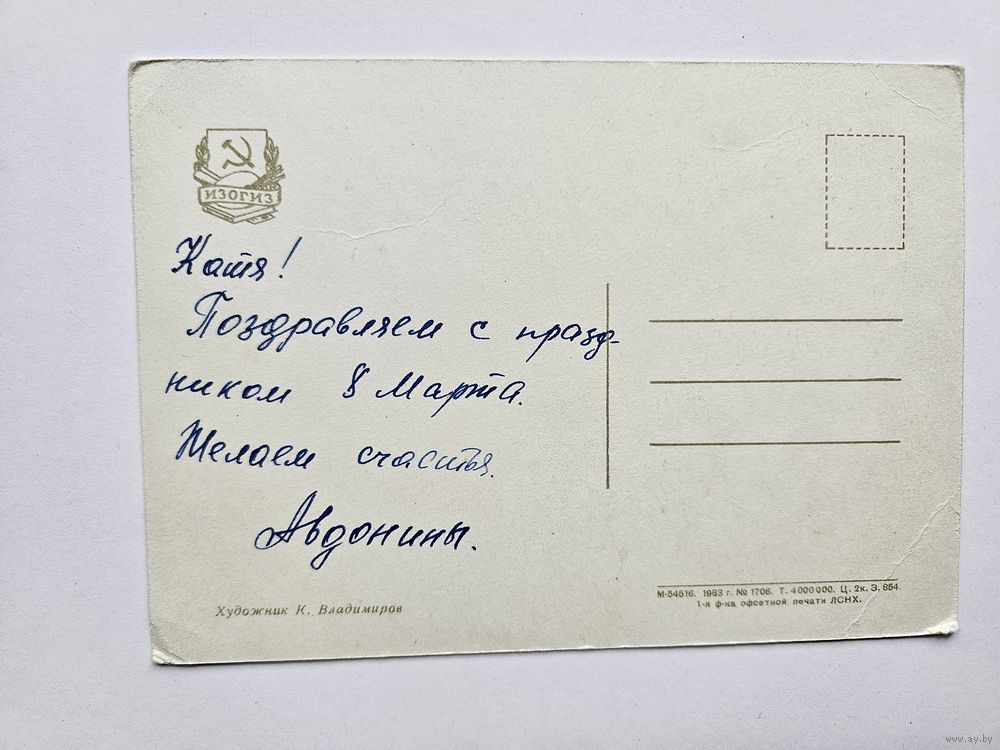 ИЗОГИЗ
Катя!
Поздравляем с празд-
ником 8 Марта.
Желаем счастья.
Авдонины.
Художник К. Владимиров
М-54516. 1963 г. № 1706. Т. 4000000. Ц. 2к. З. 854.
1-я ф-ка офсетной печати ЛСНХ.
www.ay.by